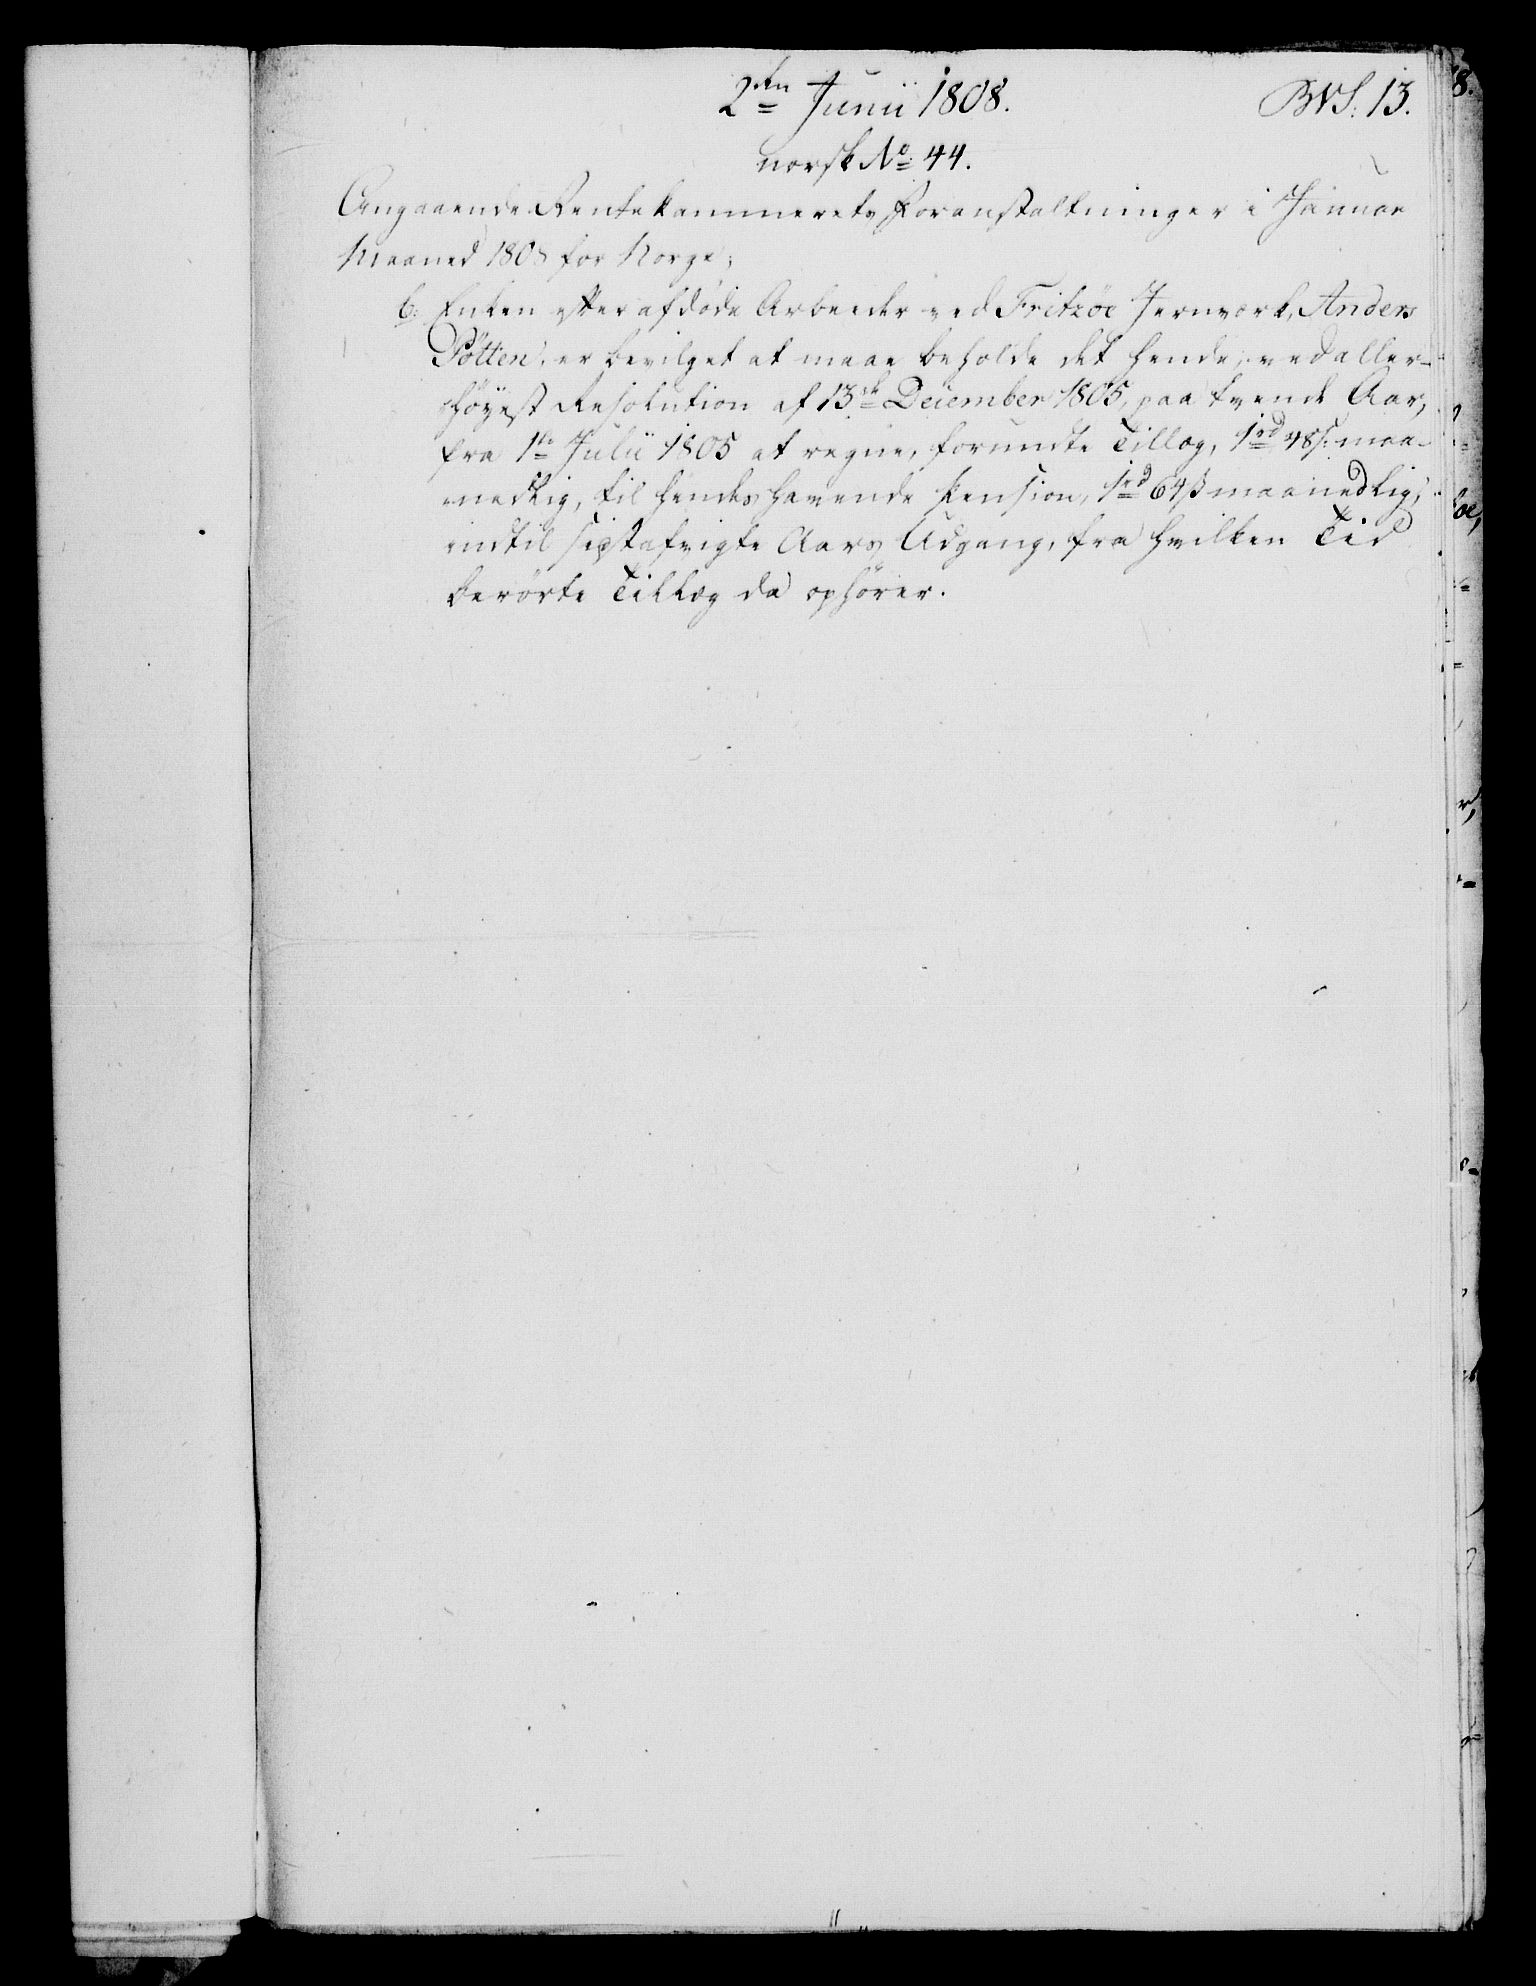 2den Junii 1808. BVS: 13.
norsk No 44.
Angaaende Rentekammerets Foranstaltninger i Januar
Maaned 1808 for Norge;
6: Enken efter afdøde Arbeider ved Fritzöe Jernværk, Anders
Pötten, er bevilget at maae beholde det hende, ved aller-
höyest Resolution af 13de December 1805, paa tvende Aar,
fra 1te Julii 1805 at regne, forundte Tillæg, 1rd 48s. maa-
nedlig, til hendes havende Pension, 1rd 64s maanedlig,
indtil sidstafvigte Aars Udgang, fra hvilken Tid
berørte Tillæg da ophører.